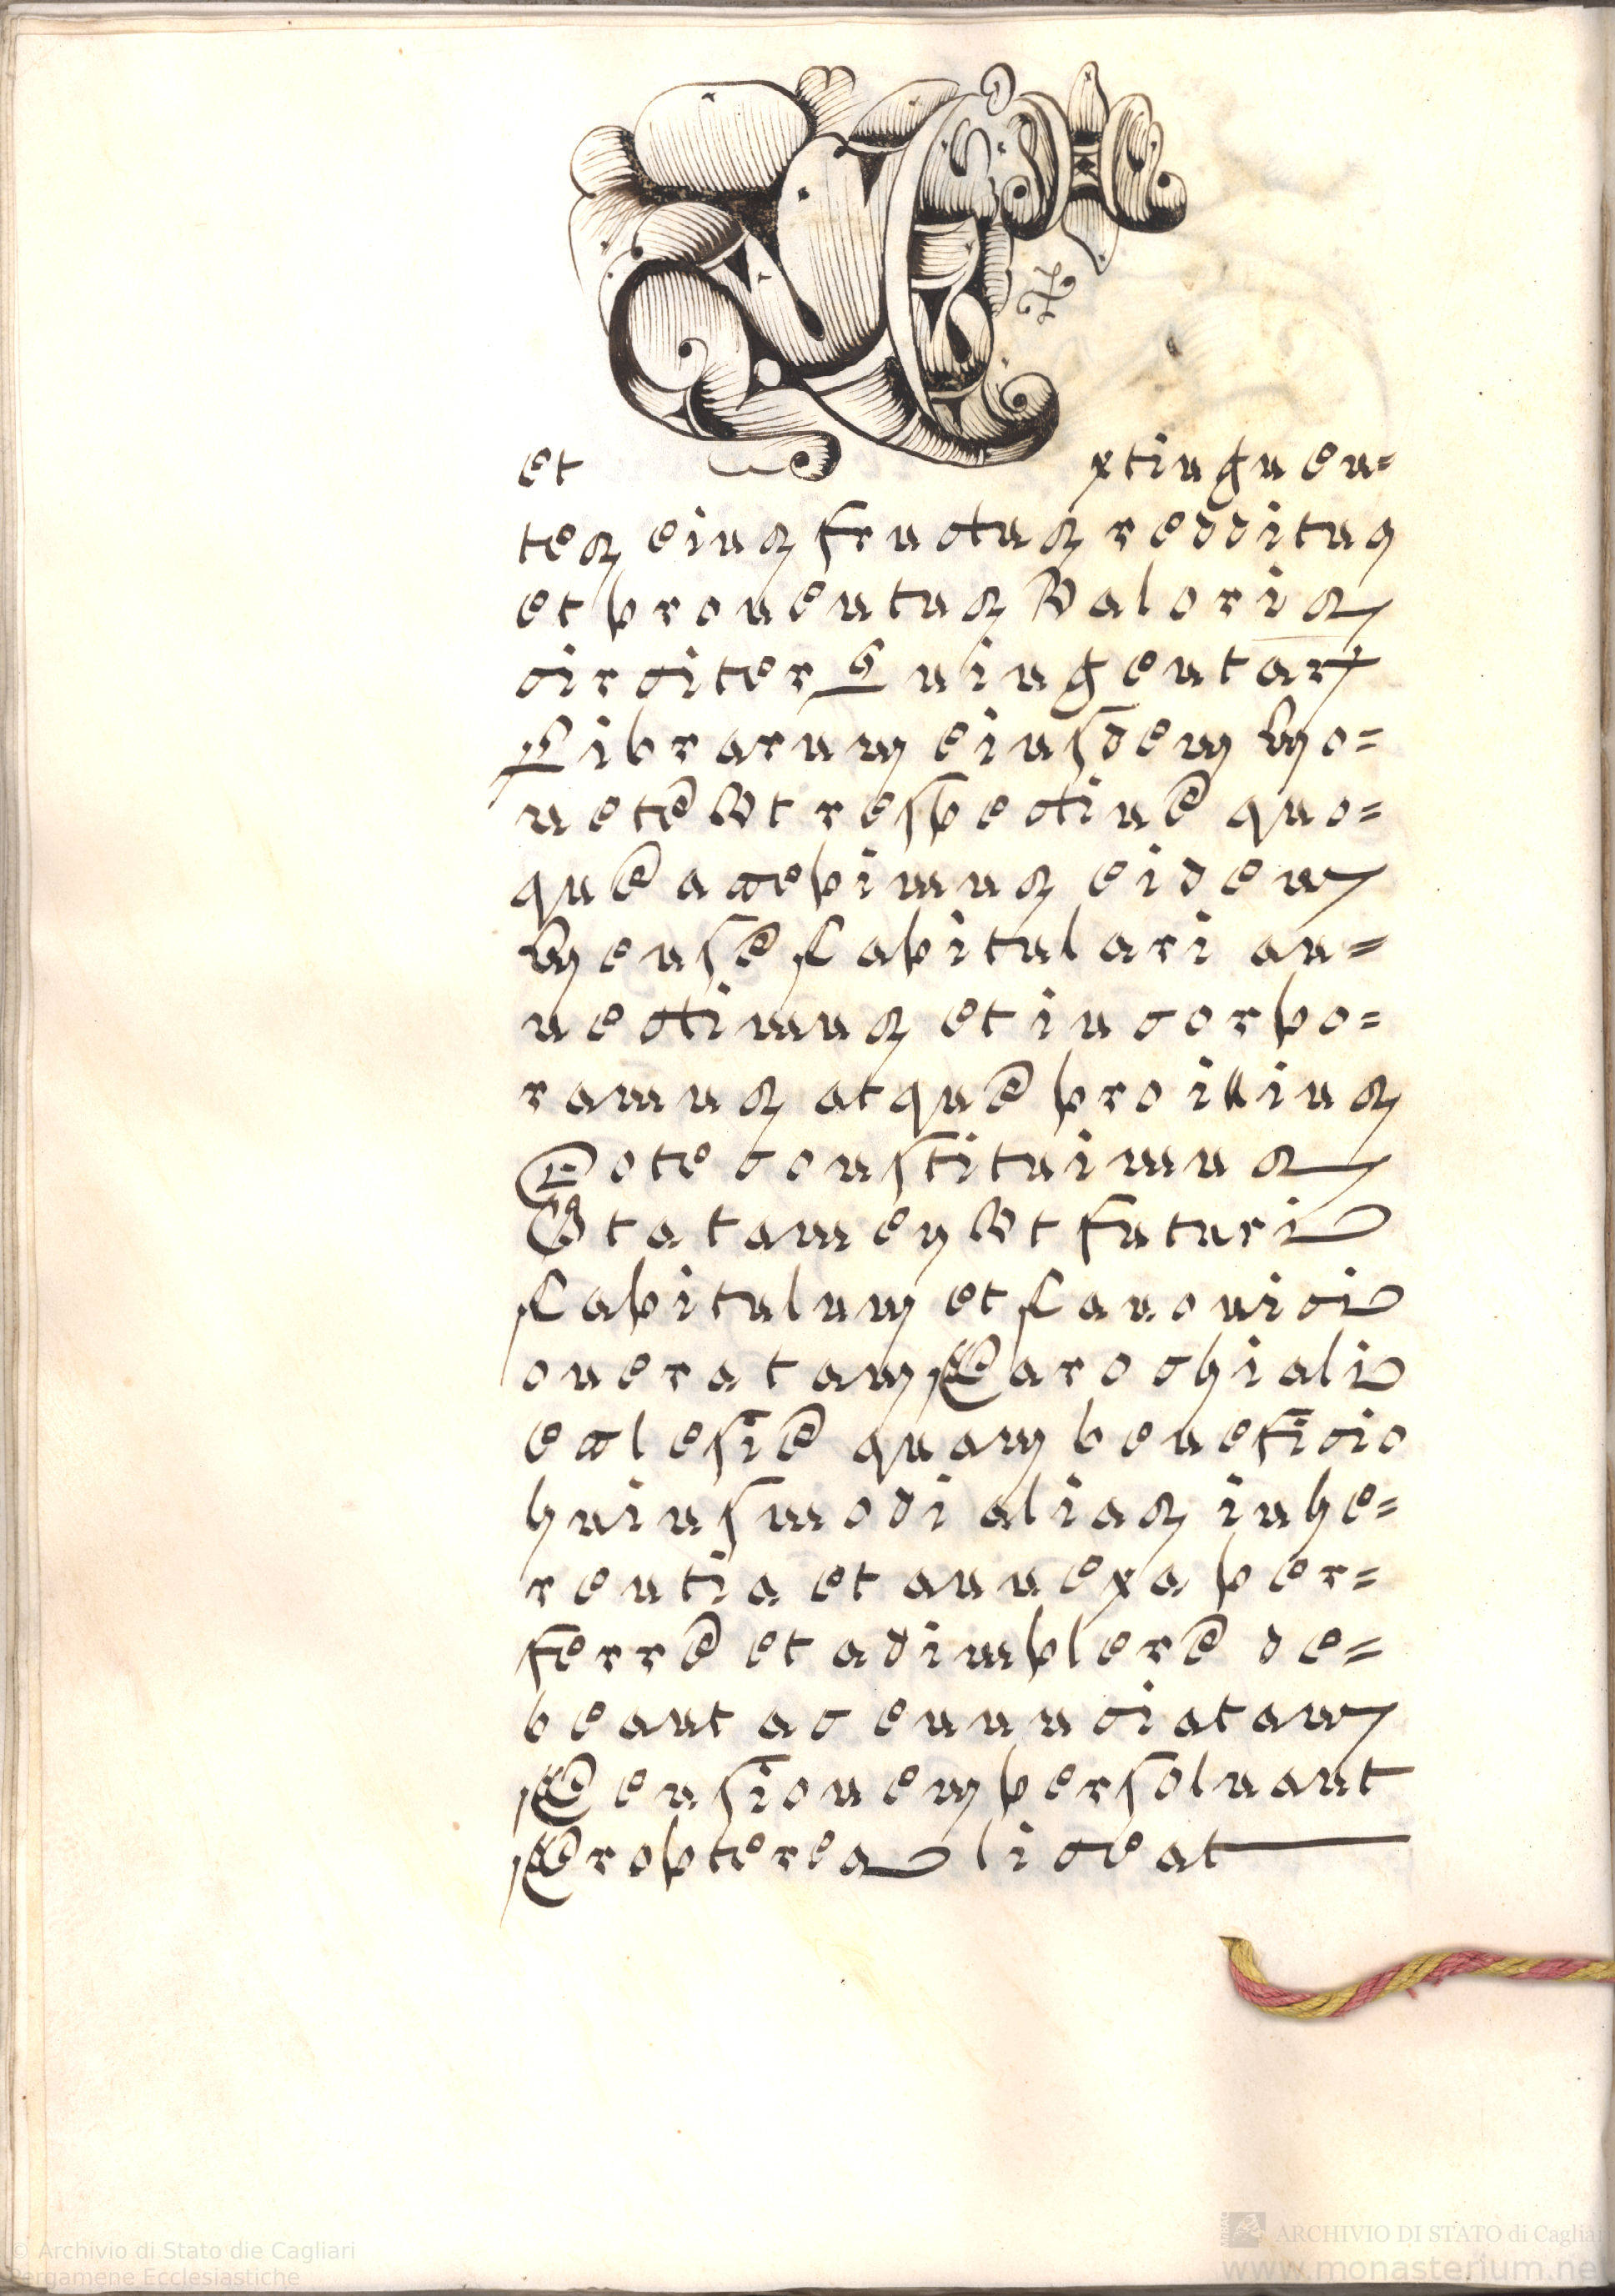 et Extinguen=
tes eius fructus redditus
et prouentus Valoris
circiter Quingentar
Librarum eiusdem Mo=
nete Vt respectiue quo=
que accepimus eidem
Mense Capitulari an=
nectimus et incorpo=
ramus atque pro illius
Dote constituimus
Ita tamen Vt futuri
Capitulum et Canonici
onera tam Parochiali
eclesie quam beneficio
huiusmodi alias inhe=
rentia et annexa per=
ferre et adimplere de=
beant ac enunciatam
Pensionem persoluant
Propterea liceat
© Archivio di Stato die Cagliari
Pergamene Ecclesiastiche
ARCHIVIO DI STATO di Cagliar
www.monasterium.ne